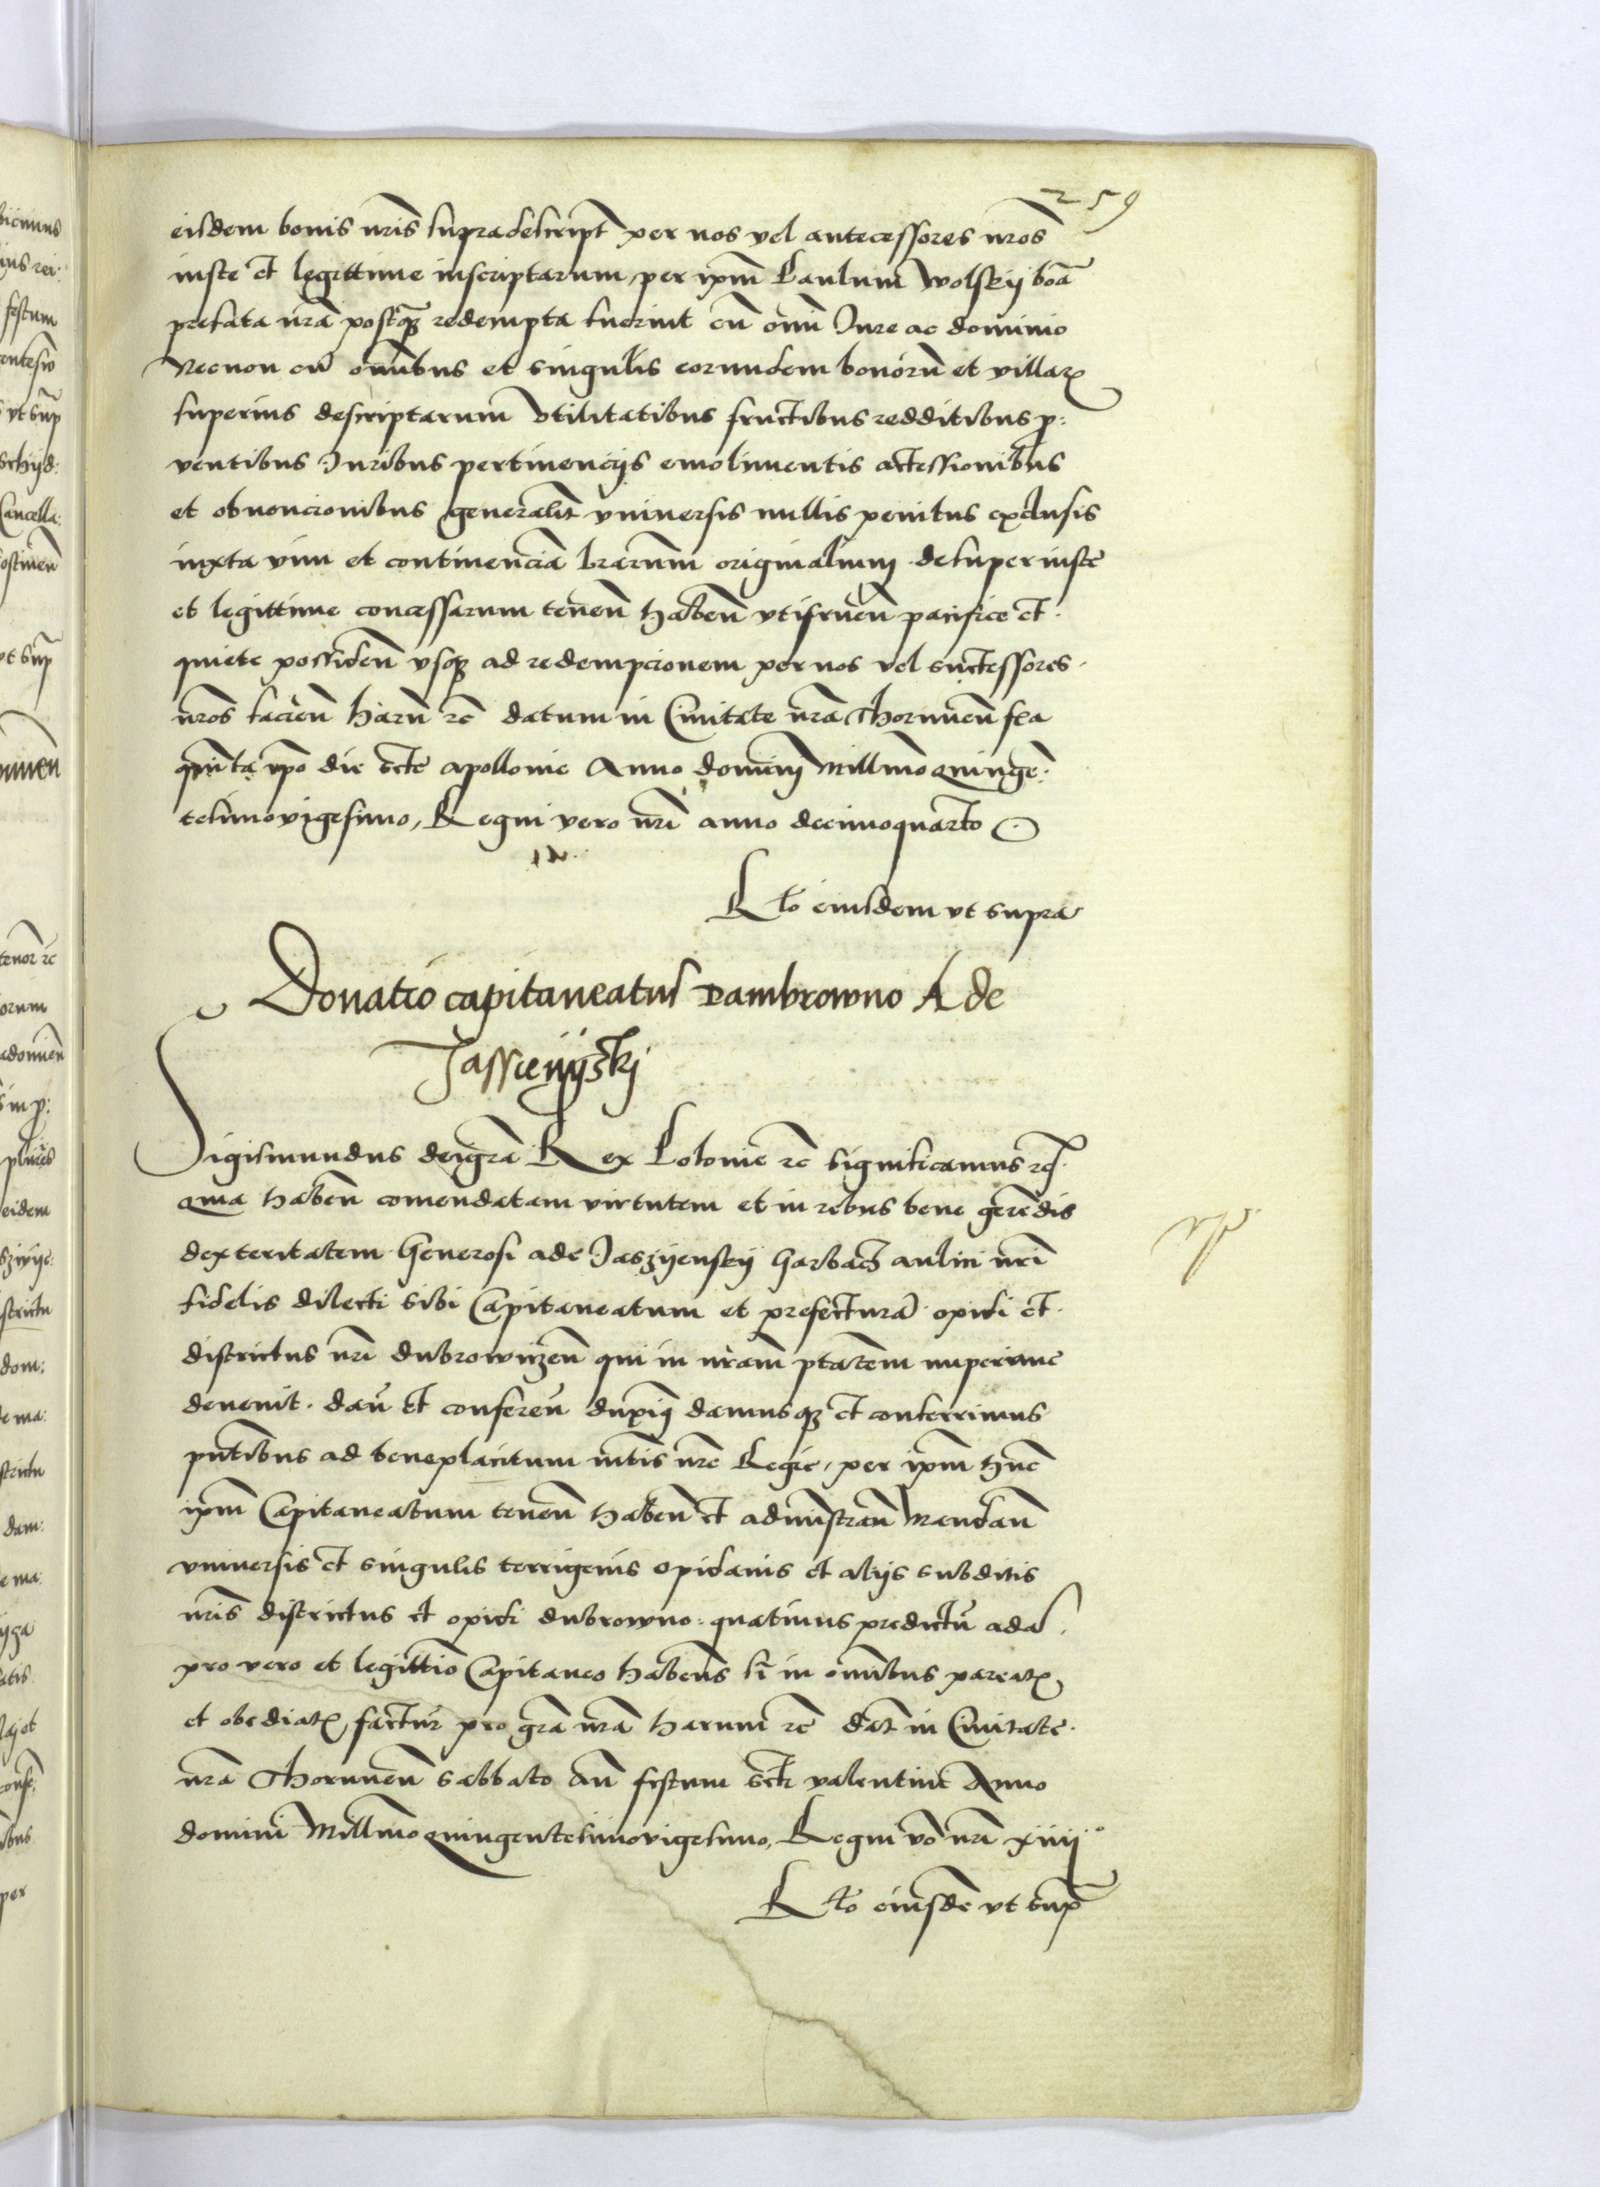 259
eisdem bonis nris supradescript per nos vel antecessores nros
iuste et legittime inscriptarum per ipm Paulum Wolskij bona
prefata nra postq redempta fuerint cu omi Iure ac dominio
Necnon cu omibus et singulis eorundem bonoru et villar
superius descriptarum Vtilitatibus fructibus redditibus p:
ventibus Iuribus pertinencijs emolimentis accessionibus
et obvencionibus generalit vniversis nullis penitus exclusis
iuxta vim et continencia lrarum originalium desuper iuste
et legittime concessarum tenen haben vtifruen pacifice et
quiete possiden vsq ad redempcionem per nos vel successores
nros facien Haru rc datum in Civitate nra Thorunien fea
quinta ipo die scte apollonie Anno domini Millmo quinge:
tesimovigesimo, Regni vero nri anno decimoquarto
Rto eiusdem vt supra
Donatio capitaneatus Dambrowno Ade
Jassyeynszkj
Sigismundus dei gra Rex Polonie rc significamus rc
Quia haben comendatam virtutem et in rebus bene geredis
dexteritatem Generosi ade Jaszyenskij Harbach aulici nri
fidelis dilecti sibi Capitaneatum et prefectura opidi et
districtus nri dubrowiczen qui in nram ptatem nuperime
devenit dan et conferen duxim damusq et conferrimus
pntibus ad beneplacitum mtis nre Regie, per ipm hnc
ipm Capitaneatum tenen haben et adminstran Mandan
vniversis et singulis terrigenis opidanis et alijs subditis
nris districtus et opidi dubrowno quatinus predictu adam
pro vero et legittio Capitaneo habeatis si in omibus pareatis
et obediatis factur pro gra nra Harum rc dat in Civitate
nra Thorunien sabbato an festum scti valentini Anno
domini Millmo quingentesimovigesimo, Regni vo nri xiiij
Rto eiusde vt sup